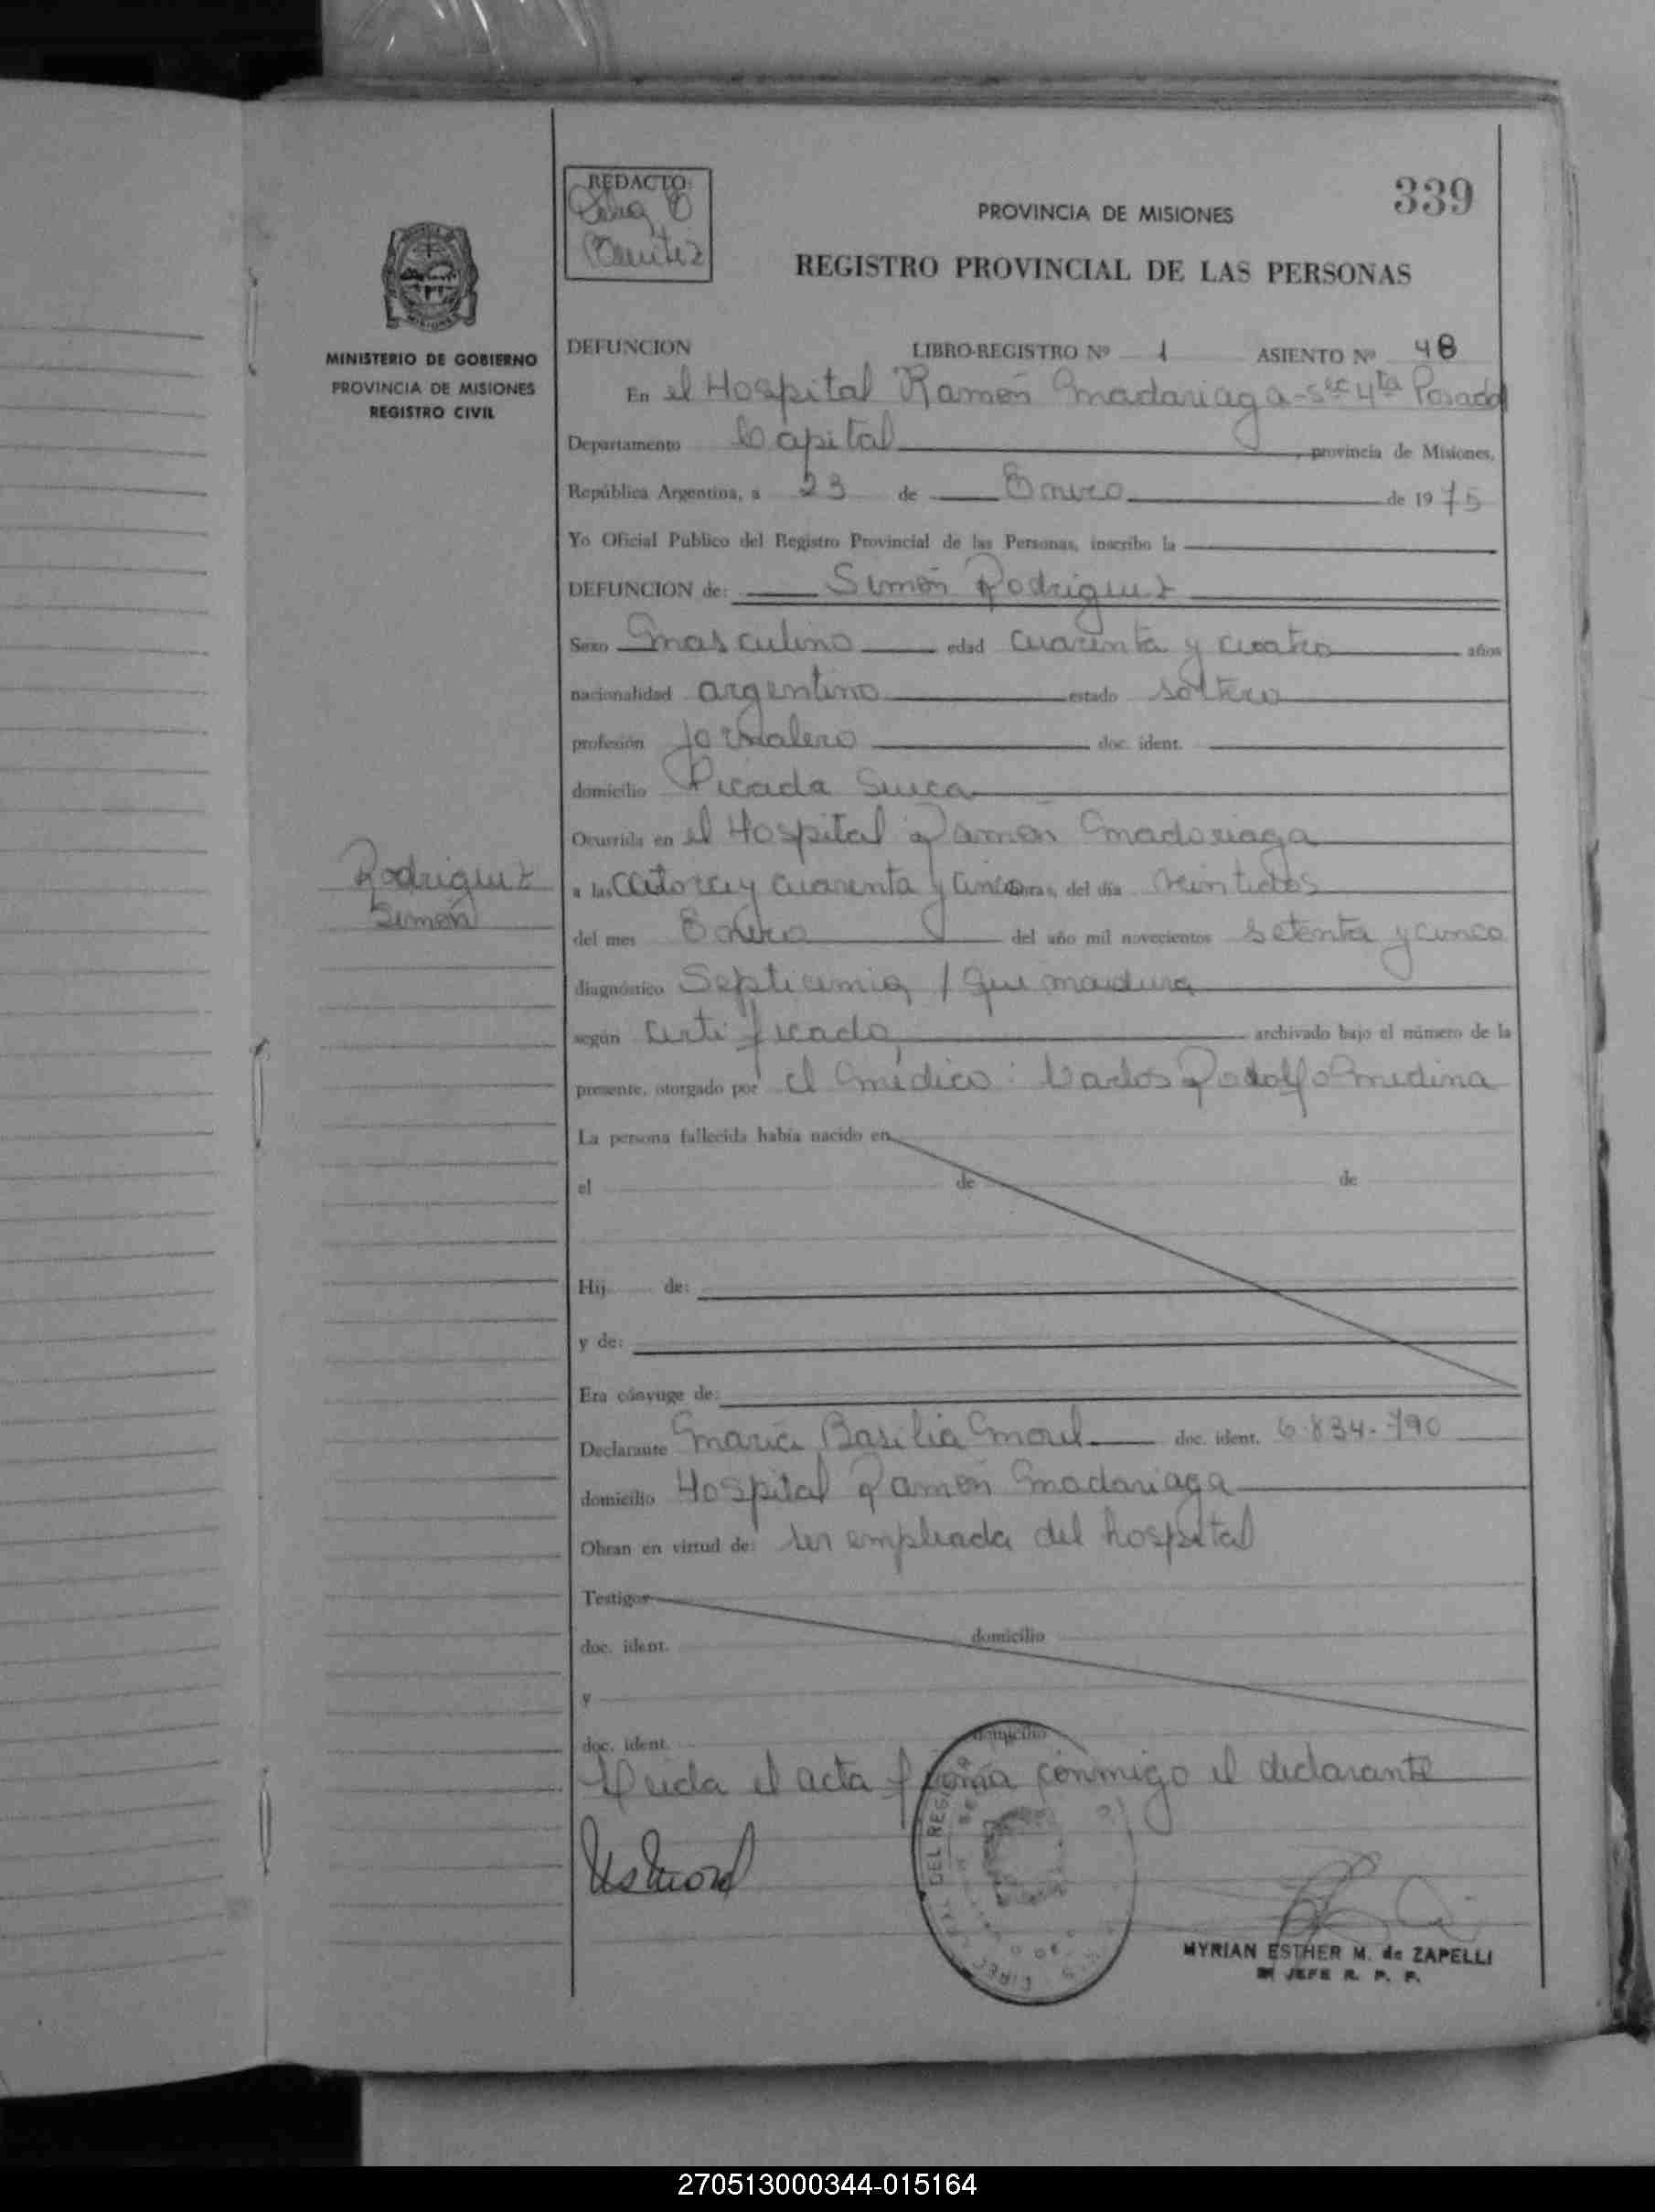 339
REDACTO:
Benitez
PROVINCIA DE MISIONES
REGISTRO PROVINCIAL DE LAS PERSONAS
MINISTERIO DE GOBIERNO
PROVINCIA DE MISIONES
REGISTRO CIVIL
DEFUNCION LIBRO-REGISTRO Nº 1 ASIENTO Nº 48
En el Hospital Ramón Madariaga - Sec 4ta Posadas
Departamento Capital, provincia de Misiones,
República Argentina, a 23 de Enero de 1975
Yo Oficial Publico del Registro Provincial de las Personas, inscribo la
DEFUNCION de: Simón Rodriguez
Sexo Masculino edad cuarenta y cuatro años
nacionalidad argentino estado soltero
profesión Jornalero doc. ident.
domicilio Picada Suiza
Ocurrida en el Hospital Ramón Madariaga
Rodriguez
Simón
a las catorce y cuarenta y cinco horas, del día veintidos
del mes Enero del año mil novecientos setenta y cinco
diagnóstico Septicemia / Quemadura
según Certificado archivado bajo el número de la
presente, otorgado por el médico: Carlos Rodolfo Medina
La persona fallecida había nacido en
el de de
Hij de:
y de:
Era cónyuge de:
Declarante Maria Basilia Morel doc. ident. 6.834.790
domicilio Hospital Ramón Madariaga
Obran en virtud de: ser empleada del hospital
Testigos
doc. ident. domicilio
y
doc. ident. domicilio
Leida el acta firma conmigo el declarante
MYRIAN ESTHER M. de ZAPELLI
JEFE R. P. P.
270513000344-015164